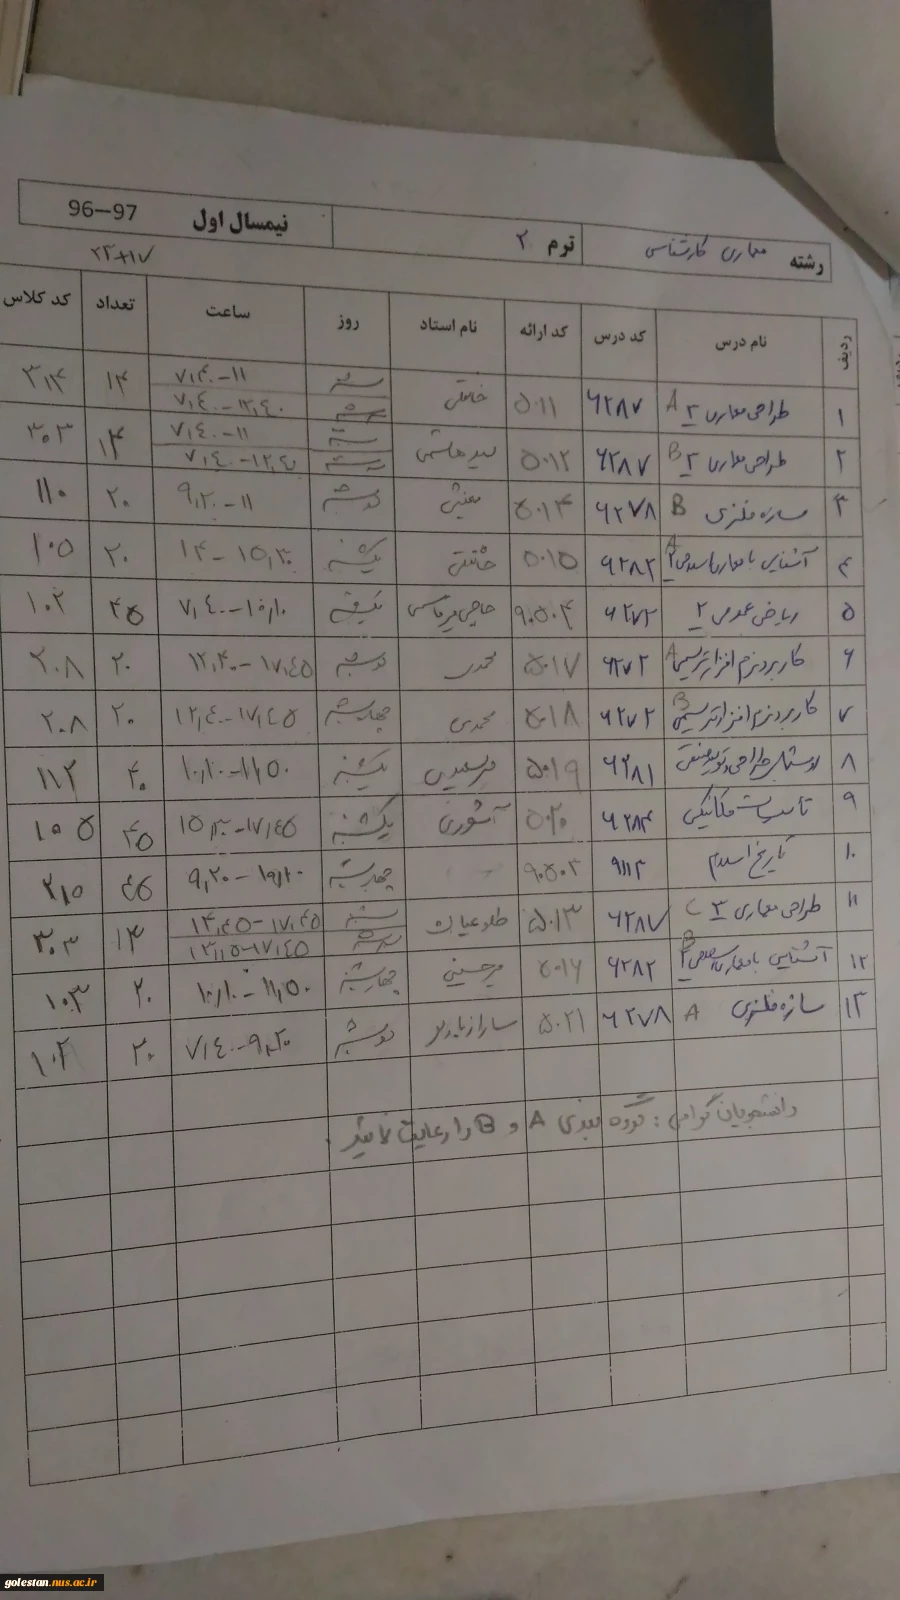 رشته معماری کارشناسی ترم ۲ نیمسال اول 96–97
۲۲+۱۷
ردیف نام درس کد درس کد ارائه نام استاد روز ساعت تعداد کد کلاس
۱ طراحی معماری ۲ A ۶۲۸۷ ۵۰۱۱ شنبه ۷,۴۰-۱۱ ۱۴ ۳۱۴
۷,۴۰-۱۲,۴۰
۲ طراحی معماری ۲ B ۶۲۸۷ ۵۰۱۲ سید هاشمی شنبه ۷,۴۰-۱۱ ۱۴ ۳۰۳
۷,۴۰-۱۲,۴۰
۳ سازه فلزی B ۶۲۷۸ ۵۰۱۴ دوشنبه ۹,۲۰-۱۱ ۲۰ ۱۱۰
۴ آشنایی با معماری اسلامی ۲ A ۶۲۸۲ ۵۰۱۵ یکشنبه ۱۴-۱۵,۳۰ ۲۰ ۱۰۵
۵ ریاضی عمومی ۲ ۶۲۷۲ ۹۰۵۰۴ یکشنبه ۷,۴۰-۱۰,۱۰ ۴۵ ۱۰۲
۶ کاربرد نرم افزار ترسیمی A ۶۲۷۲ ۵۰۱۷ محمدی دوشنبه ۱۲,۴۰-۱۷,۴۵ ۲۰ ۲۰۸
۷ کاربرد نرم افزار ترسیمی B ۶۲۷۲ ۵۰۱۸ محمدی چهارشنبه ۱۲,۴۰-۱۷,۴۵ ۲۰ ۲۰۸
۸ روشهای طراحی و تولید صنعتی ۶۲۸۱ ۵۰۱۹ میرسعیدی یکشنبه ۱۰,۱۰-۱۱,۵۰ ۴۰ ۱۱۲
۹ تاسیسات مکانیکی ۶۲۸۴ ۵۰۲۰ آشوری یکشنبه ۱۵,۳۰-۱۷,۴۵ ۴۵ ۱۰۵
۱۰ تاریخ اسلام ۹۱۱۳ ۹۰۵۰۳ چهارشنبه ۹,۲۰-۱۰,۱۰ ۴۵ ۲۱۵
۱۱ طراحی معماری ۲ C ۶۲۸۷ ۵۰۱۳ طلوعیان شنبه ۱۴,۴۵-۱۷,۴۵ ۱۴ ۳۰۳
۱۳,۱۵-۱۷,۴۵
۱۲ آشنایی با معماری اسلامی ۲ B ۶۲۸۲ ۵۰۱۶ میرحسینی چهارشنبه ۱۰,۱۰-۱۱,۵۰ ۲۰ ۱۰۳
۱۳ سازه فلزی A ۶۲۷۸ ۵۰۲۱ دوشنبه ۷,۴۰-۹,۲۰ ۲۰ ۱۰۲
دانشجویان گرامی : گروه بندی A و B را رعایت نمائید .
golestan.nus.ac.ir